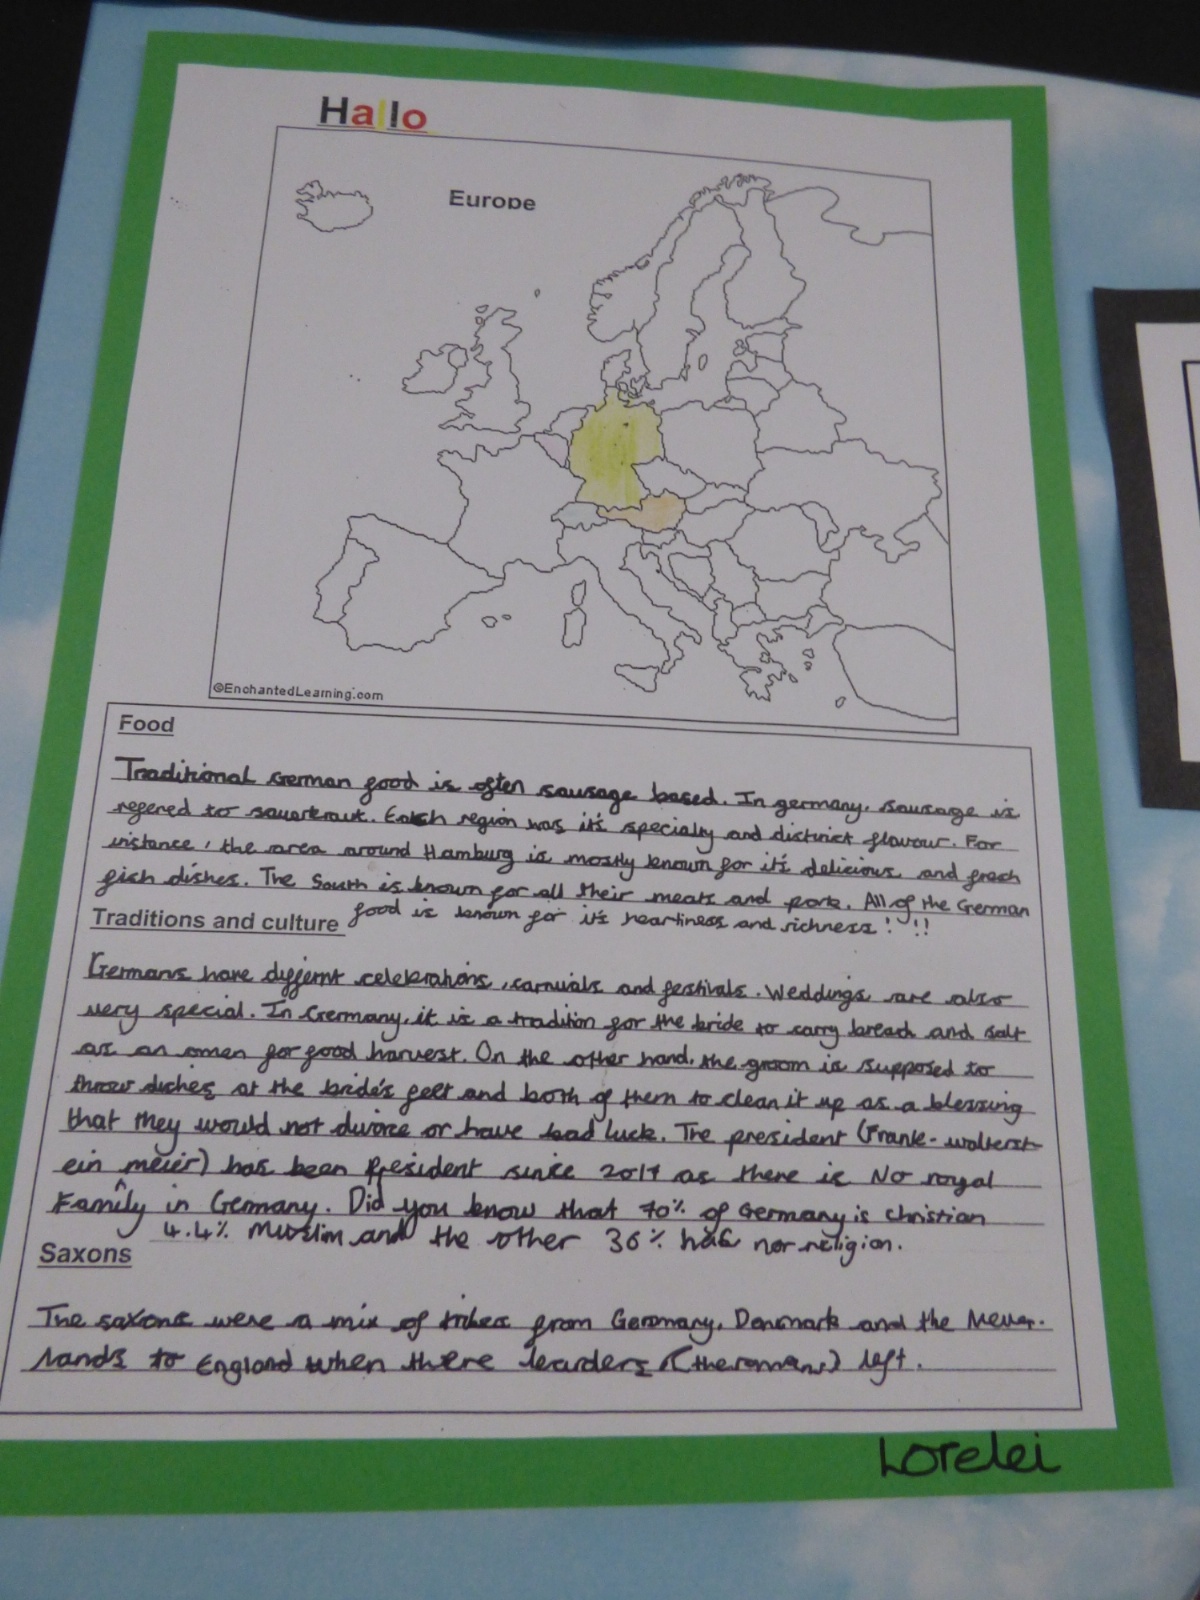 Hallo
Europe
©EnchantedLearning.com
Food
Traditional German food is often sausage based. In germany, sausage is
refered to sauerkraut. Each region has it's specialty and distinct flavour. For
instance, the area around Hamburg is mostly known for it's delicious and fresh
fish dishes. The South is known for all their meats and pork. All of the German
food is known for it's heartiness and richness! !!
Traditions and culture
Germans have differnt celebrations, carnivals and festivals. Weddings are also
very special. In Germany, it is a tradition for the bride to carry breach and salt
as an omen for good harvest. On the other hand, the groom is supposed to
throw dishes at the bride's feet and both of them to clean it up as a blessing
that they would not divorce or have bad luck. The president (Frank-walterst-
ein meier) has been President since 2017 as there is No royal
Family in Germany. Did you know that 70% of Germany is christian
4.4% Muslim and the other 36% has nor religion.
Saxons
The saxons were a mix of tribes from Germany, Denmark and the
lands to England when there learders (the romans) left.
Lorelei